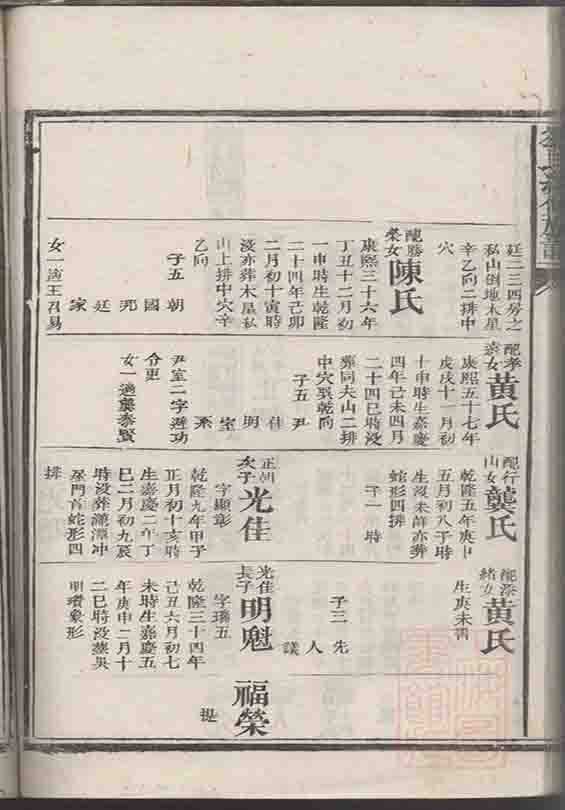 廷二三四房之
私山倒地木星
辛乙向二排中
穴
配勝
榮女
陳氏
康熙三十六年
丁丑十二月初
一申時生乾隆
二十四年己卯
二月初十寅時
没亦葬木星私
山上排中穴辛
乙向
子五 朝
國
邦
廷
家
女一適王召易
配孝
遠女
黃氏
康熙五十七年
戊戌十一月初
十申時生嘉慶
四年己未四月
二十四巳時没
葬同夫山二排
中穴巽乾向
子五 尹
佳
明
室
系
尹室二字避功
令更
女一適龔泰賢
配行
山女
龔氏
乾隆五年庚申
五月初八子時
生没未詳亦葬
蛇形四排
子一 時
正朝
次子
光佳
字顯彰
乾隆九年甲子
正月初十亥時
生嘉慶二年丁
巳二月初九辰
時没葬謙潭冲
屋門首蛇形四
排
配添
緒女
黃氏
生庚未書
子三 先
人
議
光佳
長子
明魁
字瑞五
乾隆三十四年
己丑六月初七
未時生嘉慶五
年庚申二月十
二巳時没葬吳
明瓚象形
福榮
提